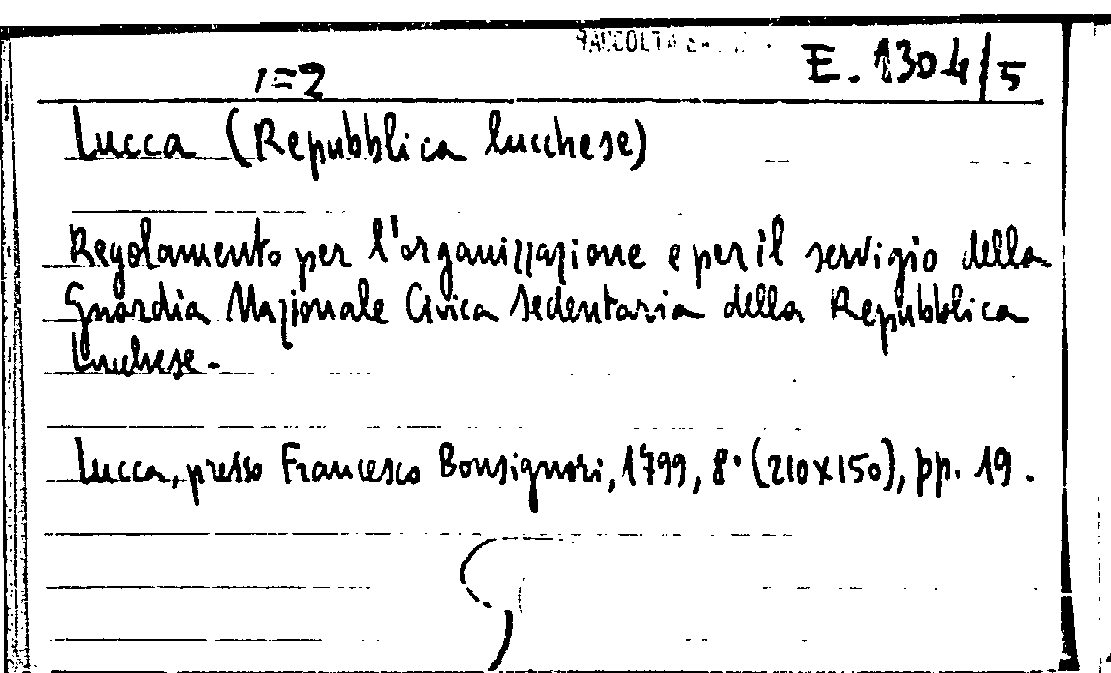 RACCOLTA
E. 1304/5
1=2
Lucca (Repubblica lucchese)
Regolamento per l'organizzazione e per il servigio della
Guardia Nazionale Civica Sedentaria della Repubblica
Lucchese.
Lucca, presso Francesco Bonsignori, 1799, 8° (210x150), pp. 19.